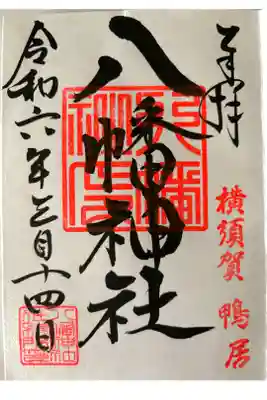 奉拝
横須賀 鴨居
八幡神社
八幡神社
令和六年三月十四日